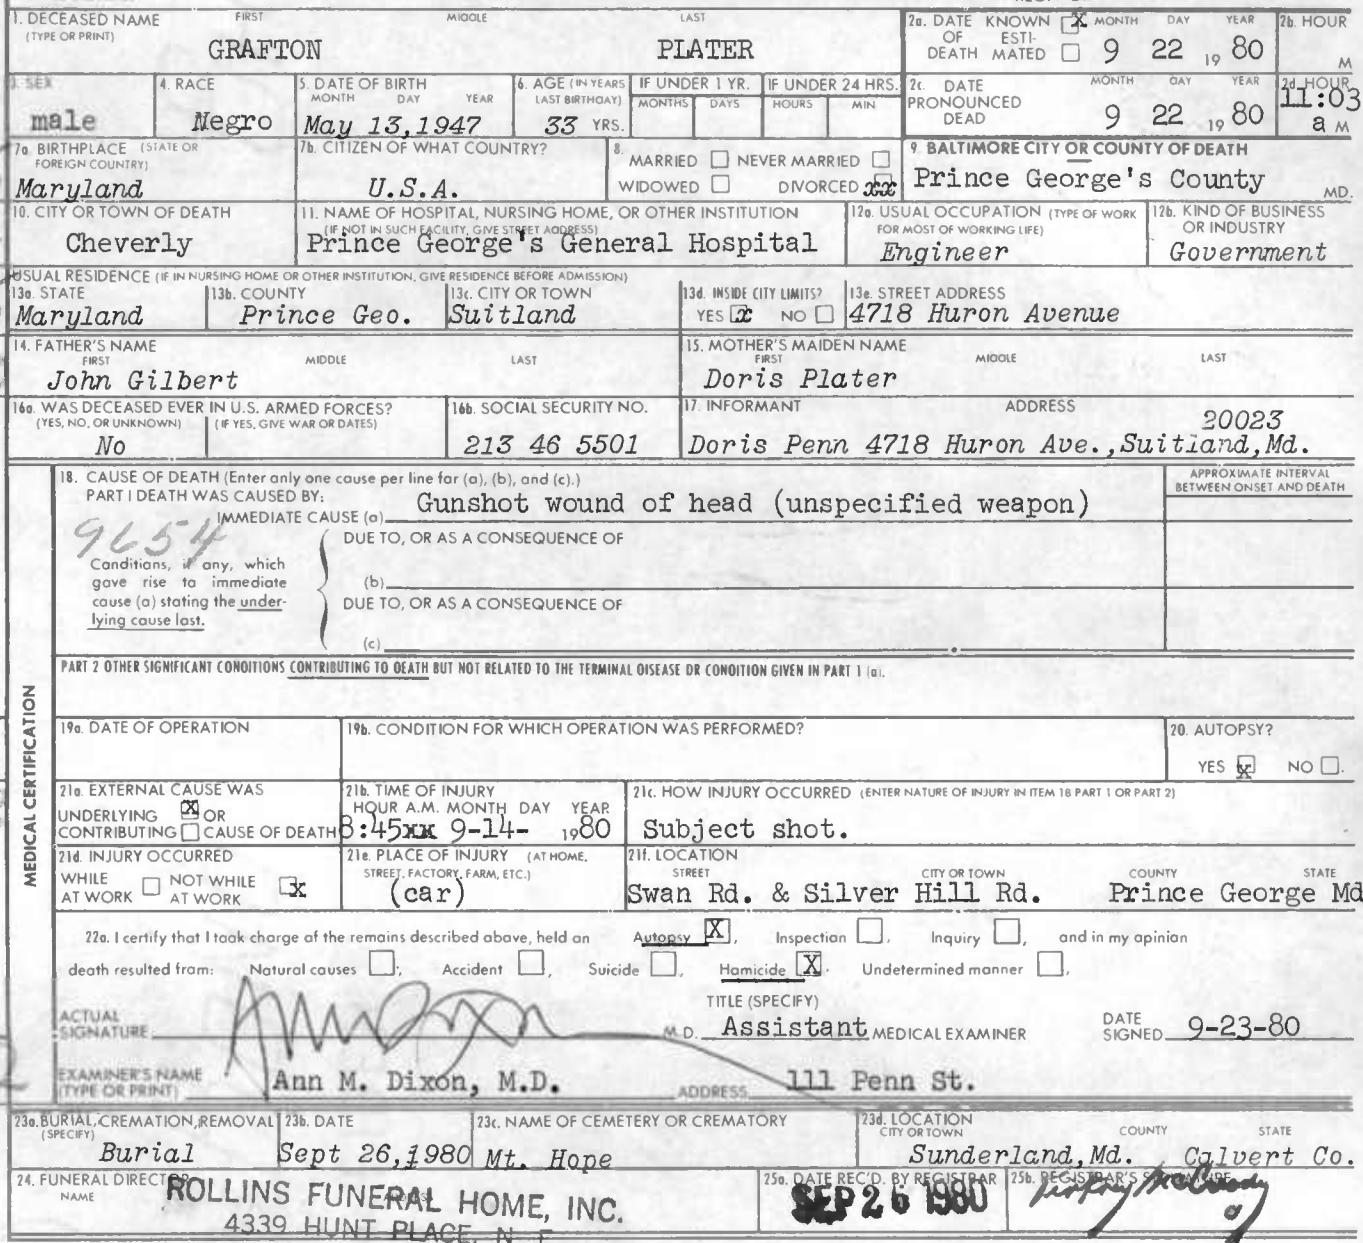 1. DECEASED NAME FIRST MIDDLE LAST
(TYPE OR PRINT)
GRAFTON PLATER
2a. DATE KNOWN X MONTH DAY YEAR
OF ESTI-
DEATH MATED 9 22 19 80
2b. HOUR
M
3. SEX
male
4. RACE
Negro
5. DATE OF BIRTH
MONTH DAY YEAR
May 13,1947
6. AGE (IN YEARS
LAST BIRTHDAY)
33 YRS.
IF UNDER 1 YR.
MONTHS DAYS
IF UNDER 24 HRS.
HOURS MIN
2c. DATE MONTH DAY YEAR
PRONOUNCED
DEAD 9 22 19 80
2d. HOUR
11:03
a M
7a BIRTHPLACE (STATE OR
FOREIGN COUNTRY)
Maryland
7b. CITIZEN OF WHAT COUNTRY?
U.S.A.
8.
MARRIED NEVER MARRIED
WIDOWED DIVORCED xx
9. BALTIMORE CITY OR COUNTY OF DEATH
Prince George's County MD.
10. CITY OR TOWN OF DEATH
Cheverly
11. NAME OF HOSPITAL, NURSING HOME, OR OTHER INSTITUTION
(IF NOT IN SUCH FACILITY, GIVE STREET ADDRESS)
Prince George's General Hospital
12a. USUAL OCCUPATION (TYPE OF WORK
FOR MOST OF WORKING LIFE)
Engineer
12b. KIND OF BUSINESS
OR INDUSTRY
Government
USUAL RESIDENCE (IF IN NURSING HOME OR OTHER INSTITUTION, GIVE RESIDENCE BEFORE ADMISSION)
13a. STATE
Maryland
13b. COUNTY
Prince Geo.
13c. CITY OR TOWN
Suitland
13d. INSIDE CITY LIMITS?
YES x NO
13e. STREET ADDRESS
4718 Huron Avenue
14. FATHER'S NAME
FIRST MIDDLE LAST
John Gilbert
15. MOTHER'S MAIDEN NAME
FIRST MIDDLE LAST
Doris Plater
16a. WAS DECEASED EVER IN U.S. ARMED FORCES?
(YES, NO, OR UNKNOWN) (IF YES, GIVE WAR OR DATES)
No
16b. SOCIAL SECURITY NO.
213 46 5501
17. INFORMANT ADDRESS
20023
Doris Penn 4718 Huron Ave.,Suitland,Md.
18. CAUSE OF DEATH (Enter only one cause per line for (a), (b), and (c).)
PART I DEATH WAS CAUSED BY:
IMMEDIATE CAUSE (a) Gunshot wound of head (unspecified weapon)
APPROXIMATE INTERVAL
BETWEEN ONSET AND DEATH
9654
DUE TO, OR AS A CONSEQUENCE OF
Conditions, if any, which
gave rise to immediate
cause (a) stating the under-
lying cause last.
(b)
DUE TO, OR AS A CONSEQUENCE OF
(c)
PART 2 OTHER SIGNIFICANT CONDITIONS CONTRIBUTING TO DEATH BUT NOT RELATED TO THE TERMINAL DISEASE OR CONDITION GIVEN IN PART 1 (a).
MEDICAL CERTIFICATION
19a. DATE OF OPERATION
19b. CONDITION FOR WHICH OPERATION WAS PERFORMED?
20. AUTOPSY?
YES x NO
21a. EXTERNAL CAUSE WAS
UNDERLYING X OR
CONTRIBUTING CAUSE OF DEATH
21b. TIME OF INJURY
HOUR A.M. MONTH DAY YEAR
8:45xx 9-14- 1980
21c. HOW INJURY OCCURRED (ENTER NATURE OF INJURY IN ITEM 18 PART 1 OR PART 2)
Subject shot.
21d. INJURY OCCURRED
WHILE NOT WHILE
AT WORK AT WORK x
21e. PLACE OF INJURY (AT HOME,
STREET, FACTORY, FARM, ETC.)
(car)
21f. LOCATION
STREET CITY OR TOWN COUNTY STATE
Swan Rd. & Silver Hill Rd. Prince George Md
22a. I certify that I took charge of the remains described above, held an Autopsy X, Inspection , Inquiry , and in my opinion
death resulted from: Natural causes , Accident , Suicide , Homicide X. Undetermined manner ,
ACTUAL
SIGNATURE M.D.
TITLE (SPECIFY)
Assistant MEDICAL EXAMINER
DATE
SIGNED 9-23-80
EXAMINER'S NAME
(TYPE OR PRINT) Ann M. Dixon, M.D.
ADDRESS 111 Penn St.
23a. BURIAL, CREMATION, REMOVAL
(SPECIFY)
Burial
23b. DATE
Sept 26,1980
23c. NAME OF CEMETERY OR CREMATORY
Mt. Hope
23d. LOCATION
CITY OR TOWN COUNTY STATE
Sunderland,Md. Calvert Co.
24. FUNERAL DIRECTOR
NAME
ROLLINS FUNERAL HOME, INC.
4339 HUNT PLACE, N E
25a. DATE REC'D. BY REGISTRAR
SEP 26 1980
25b. REGISTRAR'S SIGNATURE